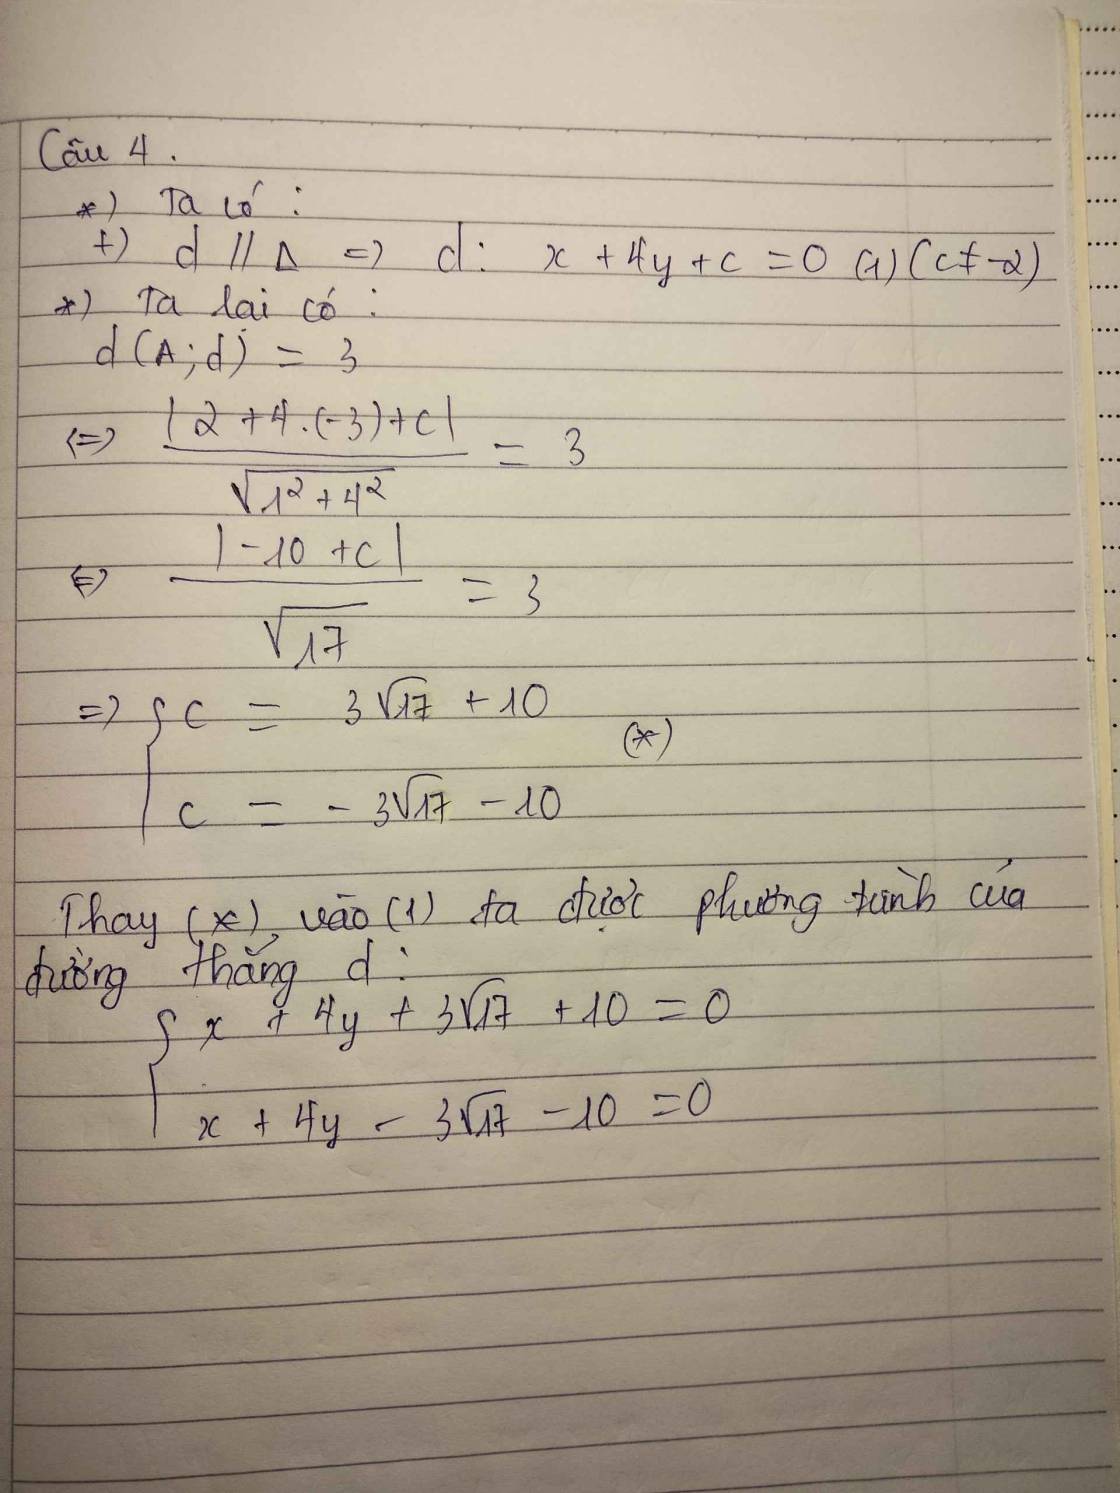 Câu 4.
*) Ta có:
+) d // Δ => d: x + 4y + c = 0 (1) (c ≠ -2)
*) Ta lại có:
d(A; d) = 3
<=> |2 + 4.(-3) + c| / √(1² + 4²) = 3
<=> |-10 + c| / √17 = 3
=> { c = 3√17 + 10
(*)
c = -3√17 - 10
Thay (*) vào (1) ta được phương trình của
đường thẳng d:
{ x + 4y + 3√17 + 10 = 0
x + 4y - 3√17 - 10 = 0